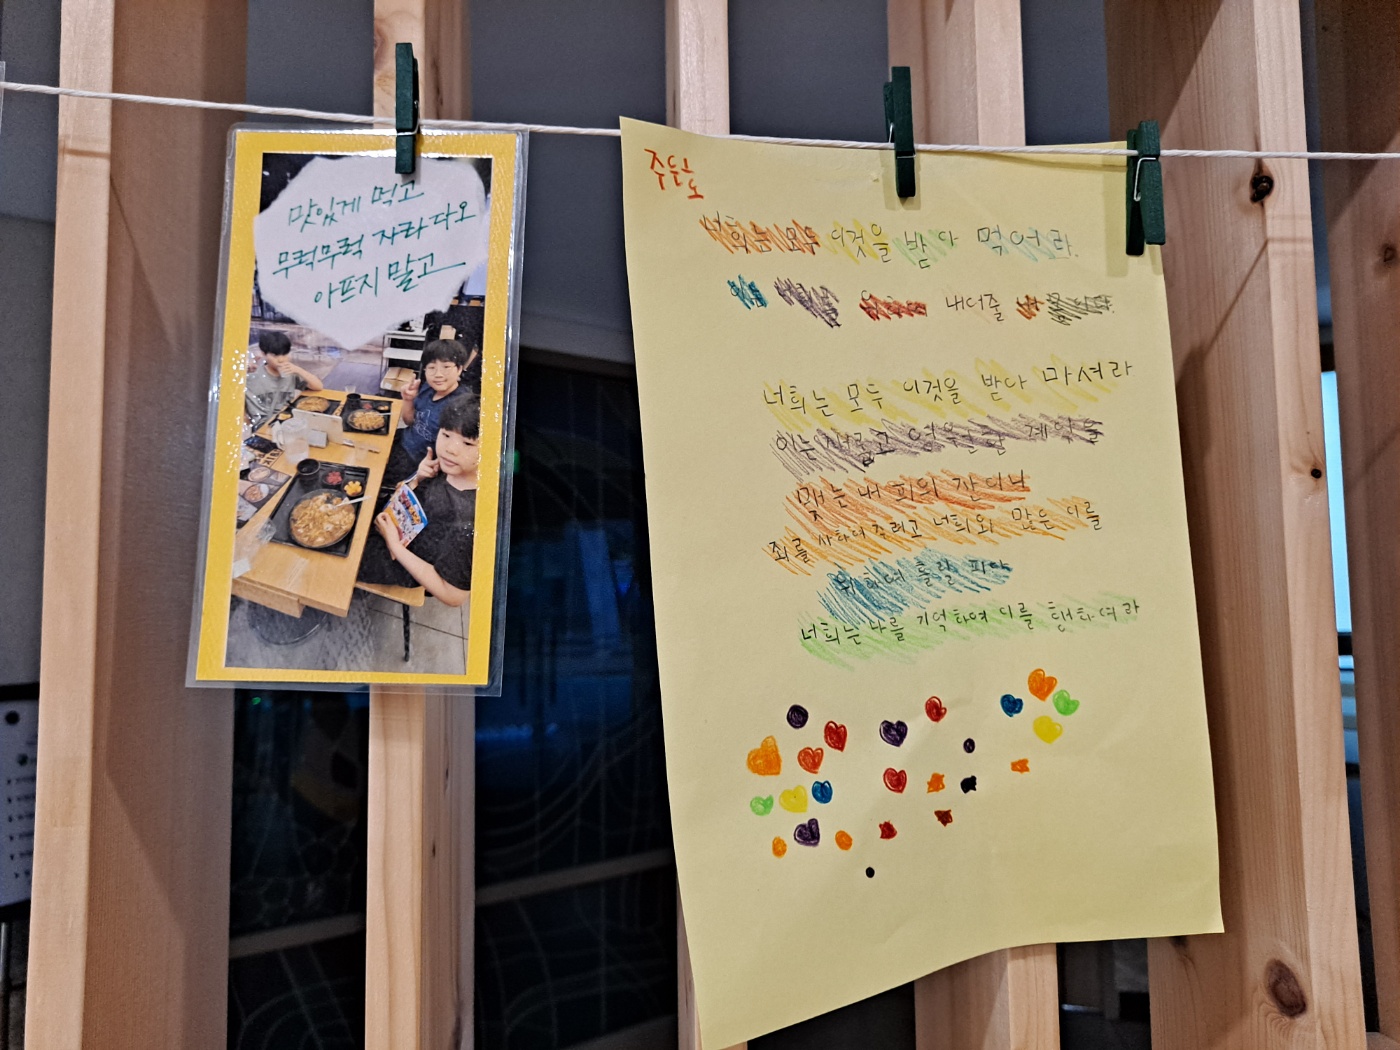 맛있게 먹고
무럭무럭 자라다오
아프지 말고
너희는 모두 이것을 받아 먹어라.
내어줄
너희는 모두 이것을 받아 마셔라
이는 새롭고 영원한 계약을
맺는 내 피의 잔이니
죄를 사하여 주려고 너희와 많은 이를
위하여 흘릴 피다
너희는 나를 기억하여 이를 행하여라